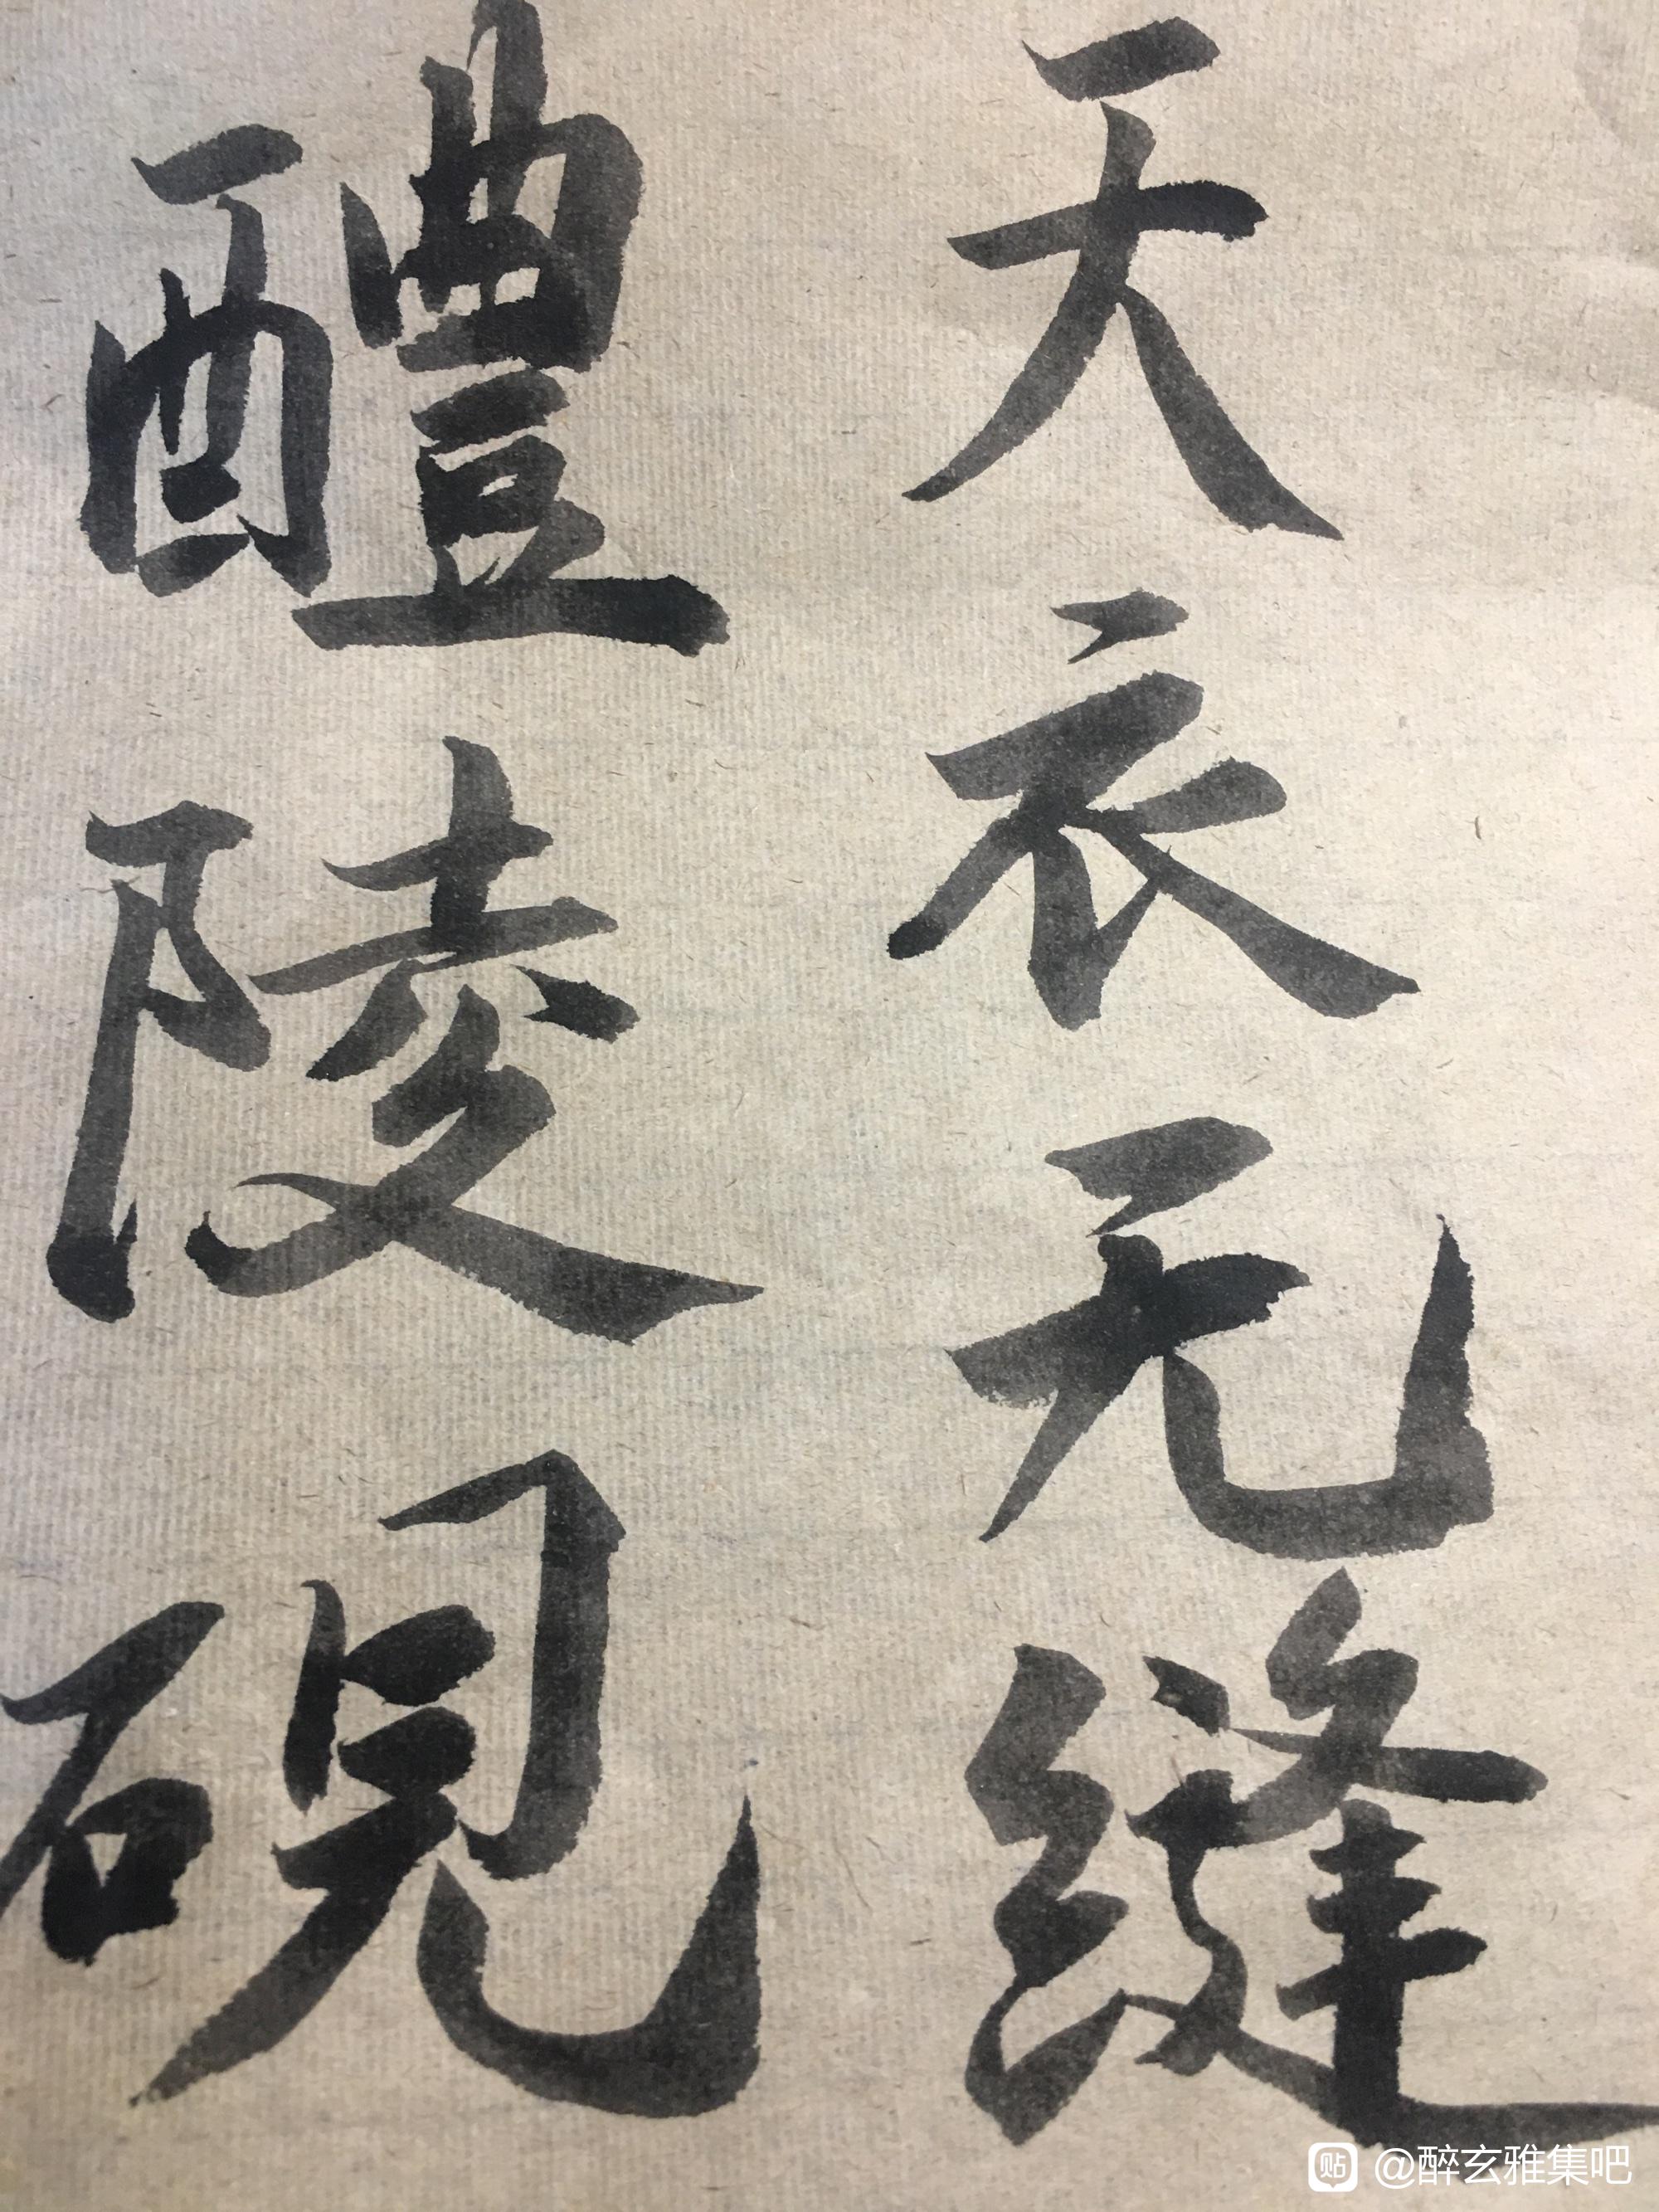 天衣无缝
醴陵砚
贴 @醉玄雅集吧